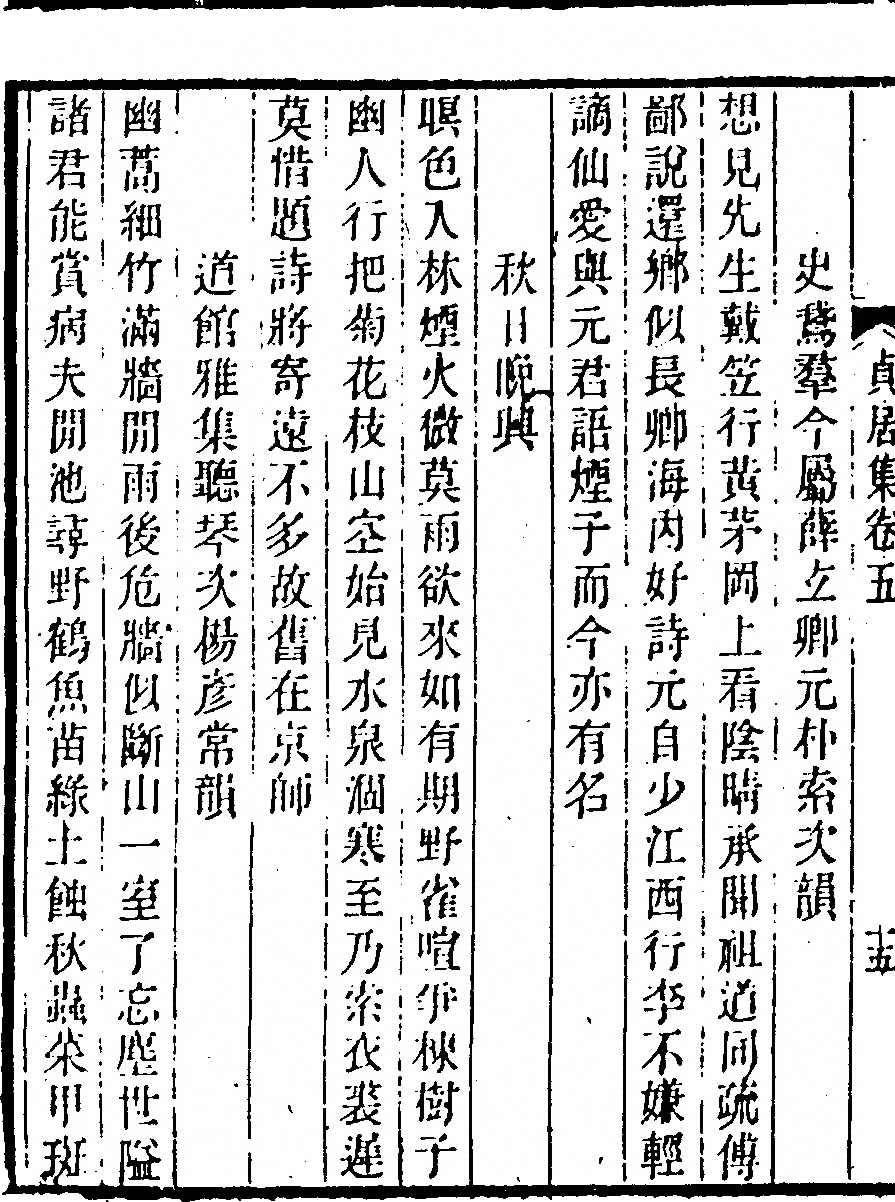 貞居集卷五
十五
史鵞羣今屬薛玄卿元朴索次韻
想見先生戴笠行黃茅岡上看陰晴承開祖道同疏傅
鄙說還鄉似長卿海內好詩元自少江西行李不嫌輕
謫仙愛與元君語煙子而今亦有名
秋日晚興
暝色入林煙火微莫雨欲來如有期野雀喧爭楝樹子
幽人行把菊花枝山空始見水泉涸寒至乃索衣裘遲
莫惜題詩將寄遠不多故舊在京師
道館雅集聽琴次楊彥常韻
幽蒿細竹滿牆開雨後危牆似斷山一室了忘塵世隘
諸君能賞病夫閒池尋野鶴魚苗綠土蝕秋蟲菜甲斑